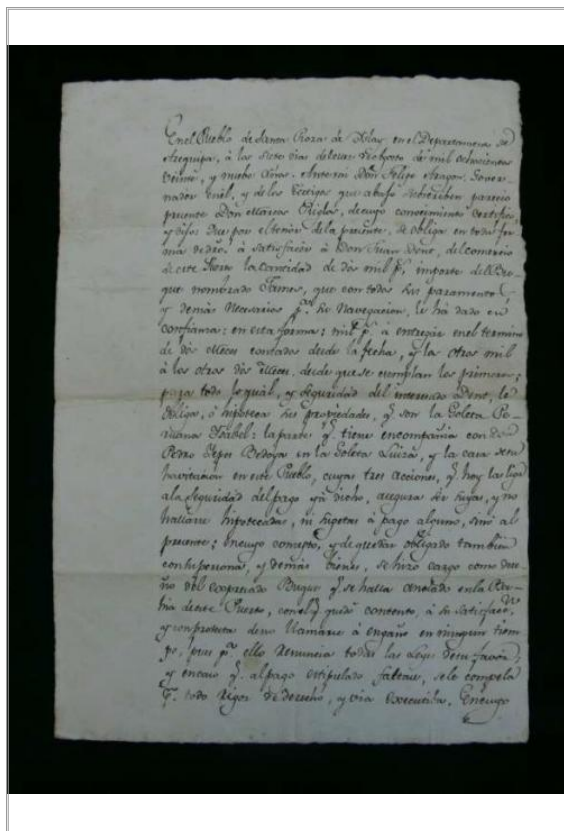 En el Pueblo de Santa Rosa de Islay, en el Departamento de
Arequipa, à los siete dias del mes de Agosto de mil ochocientos
veinte, y nueve años. Ante mi Dn. Felipe Aragon, Gover-
nador Civil, y de los testigos que abajo subscriben parecio
presente Don Marcos Riglos, de cuyo conocimiento certifico,
y dijo: que por el tenor de la presente, se obliga en toda for-
ma de dro. à satisfacer à Don Juan Dont, del comercio
de este Puerto la cantidad de dos mil ps. importe del Bu-
que nombrado James, que con todos sus paramentos,
y demàs necesarios pa. su Navegacion, le hà dado en
confianza: en esta forma: mil ps. à entregar en el termino
de dos meses contados desde la fecha, y los otros mil
à los otros dos meses, desde que se cumplan los primeros;
para todo lo qual, y seguridad del interesado Dont, le
obliga, è hipoteca sus propiedades, qe. son la Goleta Pe-
ruana Isabel: la parte qe. tiene en compañia con Don
Pedro Bedoya en la Goleta Luisa, y la casa de su
havitacion en este Pueblo, cuyas tres acciones, qe. hoy las liga
a la seguridad del pago yà dicho, asegura ser suyas, y no
hallarse hipotecadas, ni sugetas à pago alguno, sinò al
presente; en cuyo concepto, y de quedar obligado tambien
con su persona, y demàs bienes, se hizo cargo como due-
ño del Buque qe. se halla anclado en la Ba-
hia de este Puerto, con el qe. quedò contento, à su satisfacn.
y con protexta de no llamarse à engaño en ningun tiem-
po, pues pa. ello renuncia todas las Leyes de su favor;
y en caso qe. al pago estipulado faltase, se le compela
pr. todo rigor de derecho, y via executiva. En cuyo